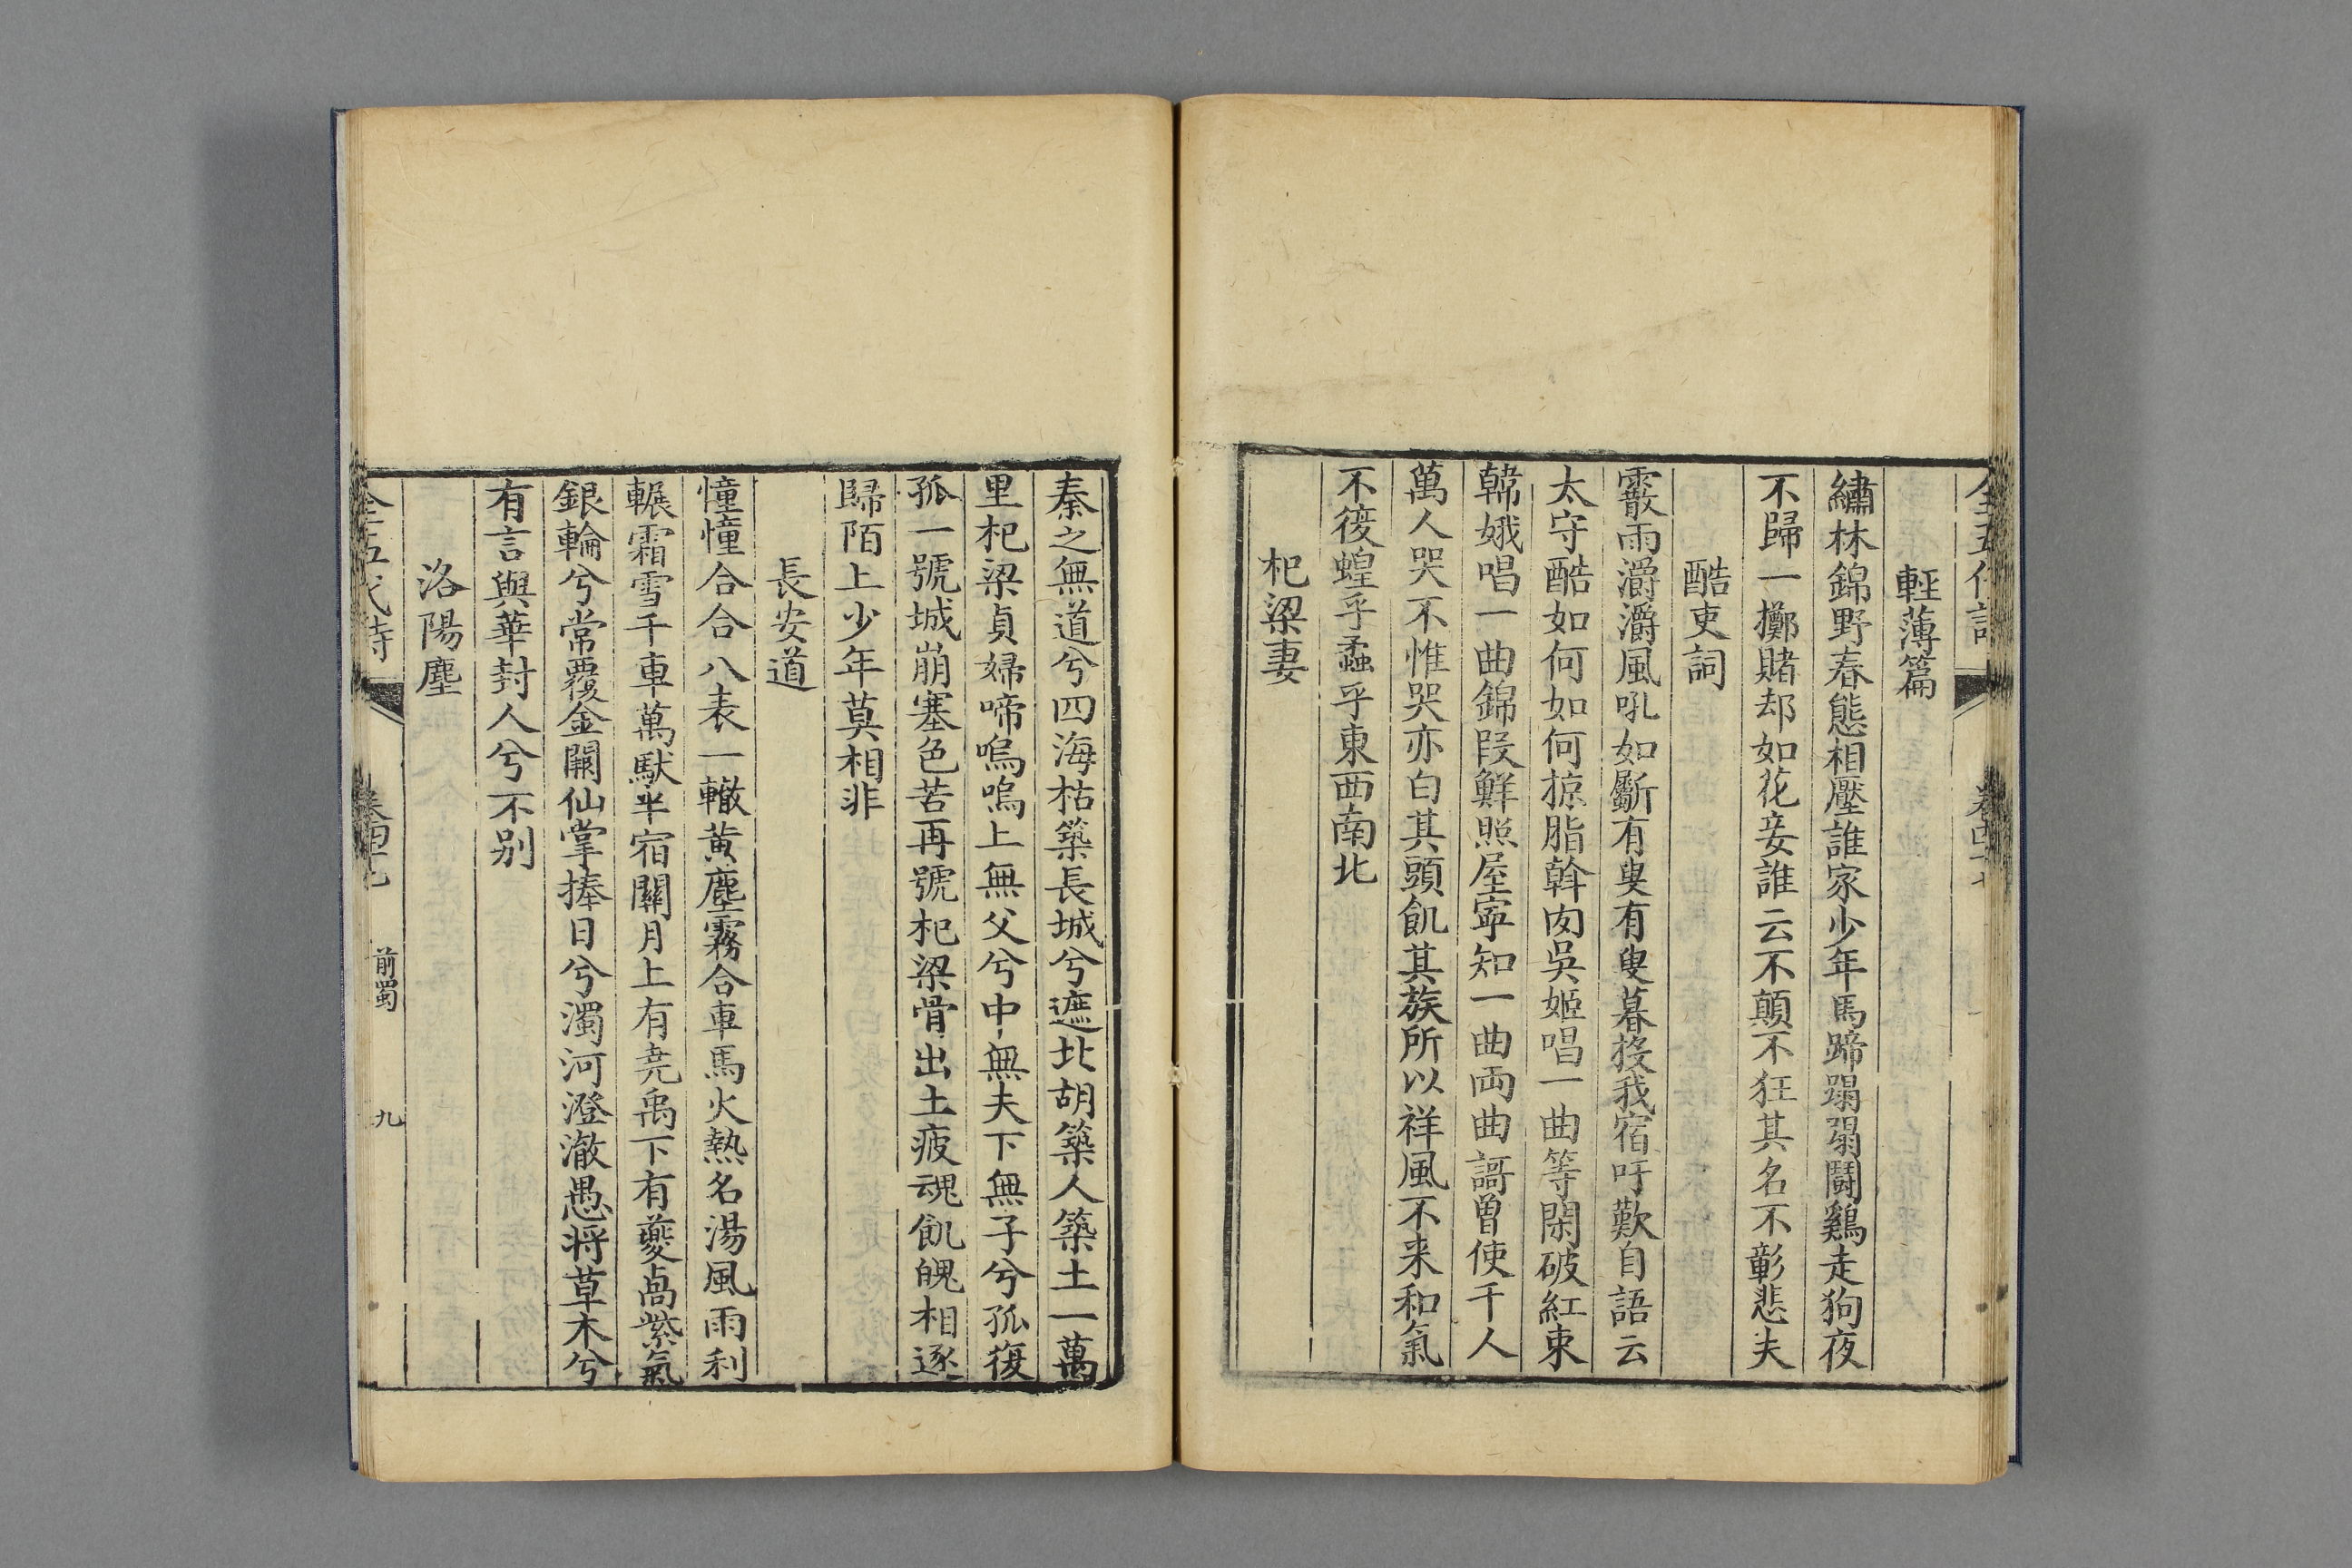 輕薄篇
繡林錦野春態相壓誰家少年馬蹄蹋蹋鬬鷄走狗夜
不歸一擲賭却如花妾誰云不顛不狂其名不彰悲夫
酷吏詞
霰雨灂灂風吼如斸有叟有叟暮投我宿吁歎自語云
太守酷如何如何掠脂斡肉吳姬唱一曲等閑破紅束
韓娥唱一曲錦段鮮照屋寧知一曲兩曲謌曾使千人
萬人哭不惟哭亦白其頭飢其族所以祥風不来和氣
不復蝗乎蟊乎東西南北
杞梁妻
秦之無道兮四海枯築長城兮遮北胡築人築土一萬
里杞梁貞婦啼嗚嗚上無父兮中無夫下無子兮孤復
孤一號城崩塞色苦再號杞梁骨出土疲魂飢魄相逐
歸陌上少年莫相非
長安道
憧憧合合八表一轍黄塵霧合車馬火熱名湯風雨利
輾霜雪千車萬馱半宿關月上有堯禹下有夔卨紫氣
銀輪兮常覆金闕仙掌捧日兮濁河澄澈愚将草木兮
有言與華封人兮不别
洛陽塵
全五代詩
前蜀
九